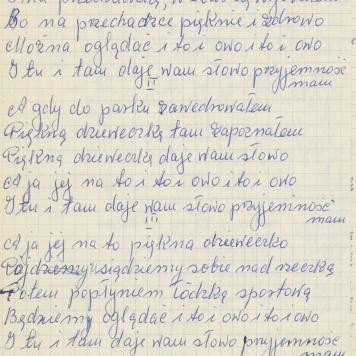 Bo na przechadzce pięknie i zdrowo
Można oglądać i to i owo i to i owo
I tu i tam daję wam słowo przyjemność
mam
II
A gdy do parku zawędrowałem
Piękną dzieweczkę tam zapoznałem
Piękną dzieweczkę daje wam słowo
A ja jej na to i to i owo i to i owo
I tu i tam daje wam słowo przyjemność
mam
III
A ja jej na to piękna dzieweczko
siądziemy sobie nad rzeczką
Potem popłyniem łódzką sportową
Będziemy oglądać i to i owo i to i owo
I tu i tam daje wam słowo przyjemność
mam